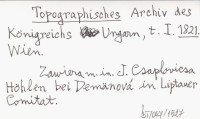 Topographisches Archiv des
Königreichs Ungarn, t. I. 1821.
Wien.
Zawiera m. in. J. Csaplovicsa
Höhlen bei Demánová in Liptauer
Comitat.